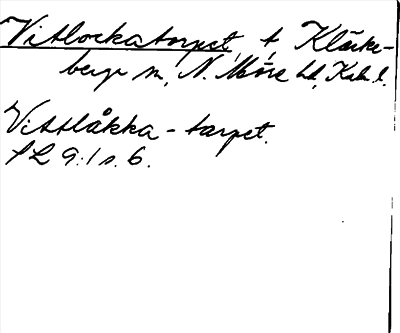 Vitlockatorpet, t, Klåcke-
berga sn, N. Möre hd, Kalm. l.
Vittlåkka-tarpet.
SL 9:1 s. 6.